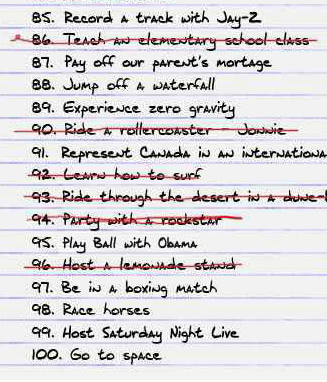 85. Record a track with Jay-Z
86. Teach an elementary school class
87. Pay off our parent's mortage
88. Jump off a waterfall
89. Experience zero gravity
90. Ride a rollercoaster - Jonnie
91. Represent Canada in an internationa
92. Learn how to surf
93. Ride through the desert in a dune-b
94. Party with a rockstar
95. Play Ball with Obama
96. Host a lemonade stand
97. Be in a boxing match
98. Race horses
99. Host Saturday Night Live
100. Go to space